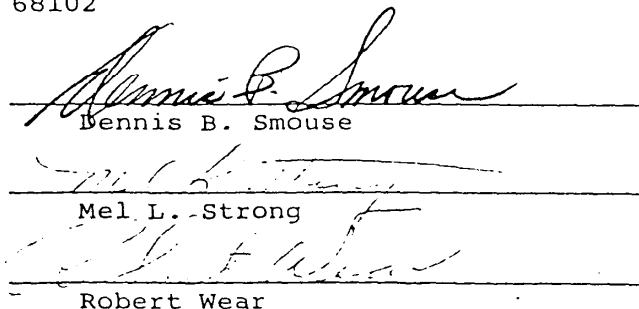 68102
Dennis B. Smouse
Dennis B. Smouse
Mel L. Strong
Robert Wear